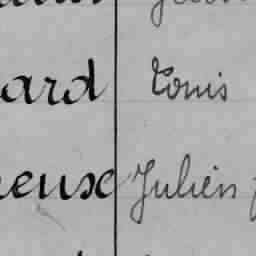 ard Louis
eux Julien